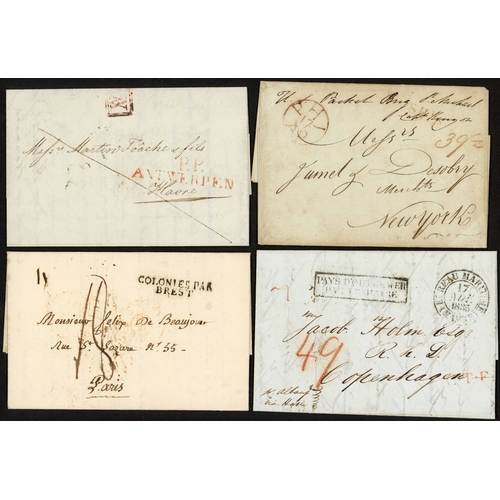 Messrs Martin Foache & fils
P.P.
ANTWERPEN
Havre
Packet Brig
Messrs
39
Jumel & Desobry
Merchts
New York
COLONIES PAR
BREST
18
Monsieur Felix De Beaujour
Rue St Lazare No 55
Paris
PAYS D'OUTREMER
BUREAU MARITIME
17
1835
Jacob Holm Esq
49
Copenhagen